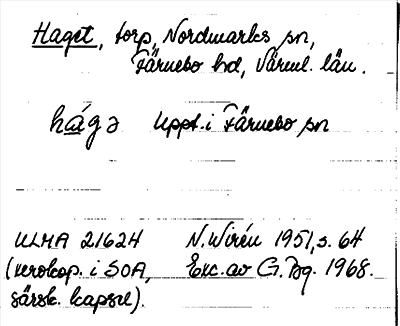 Haget, torp, Nordmarks sn,
Färnebo hd, Värml. län.
hágə Uppt. i Färnebo sn
ULMA 21624 N. Wirén 1951, s. 64
(xerokop. i SOA, Exc. av G. Bg. 1968.
särsk. kapsel).